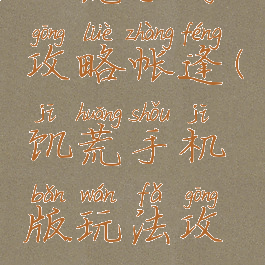 gōng lüè zhàng féng
攻略帐逢(
jī huāng shǒu jī
饥荒手机
bǎn wán fǎ gōng
版玩法攻